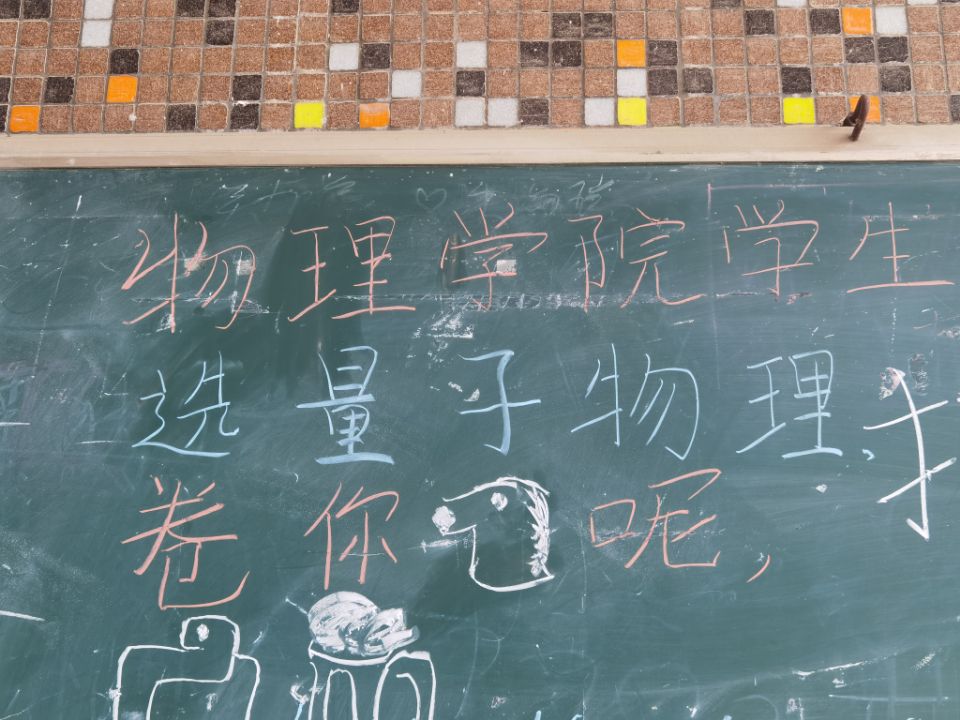 物理学院学生
选量子物理,
卷你呢,